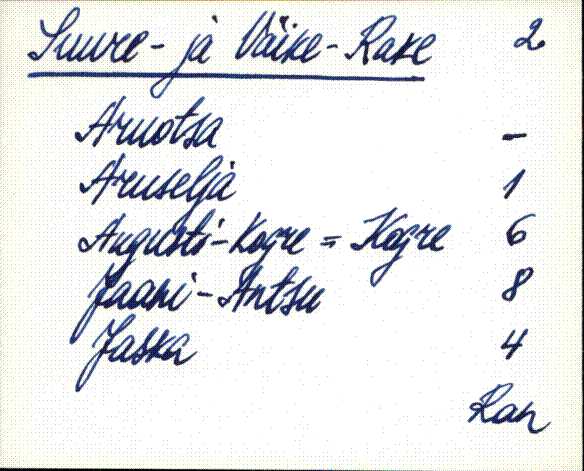 Suure- ja Väike-Rake 2
Aruotsa -
Aruselja 1
Augusti-Kogre = Kogre 6
Jaani-Antsu 8
Jaska 4
Ran